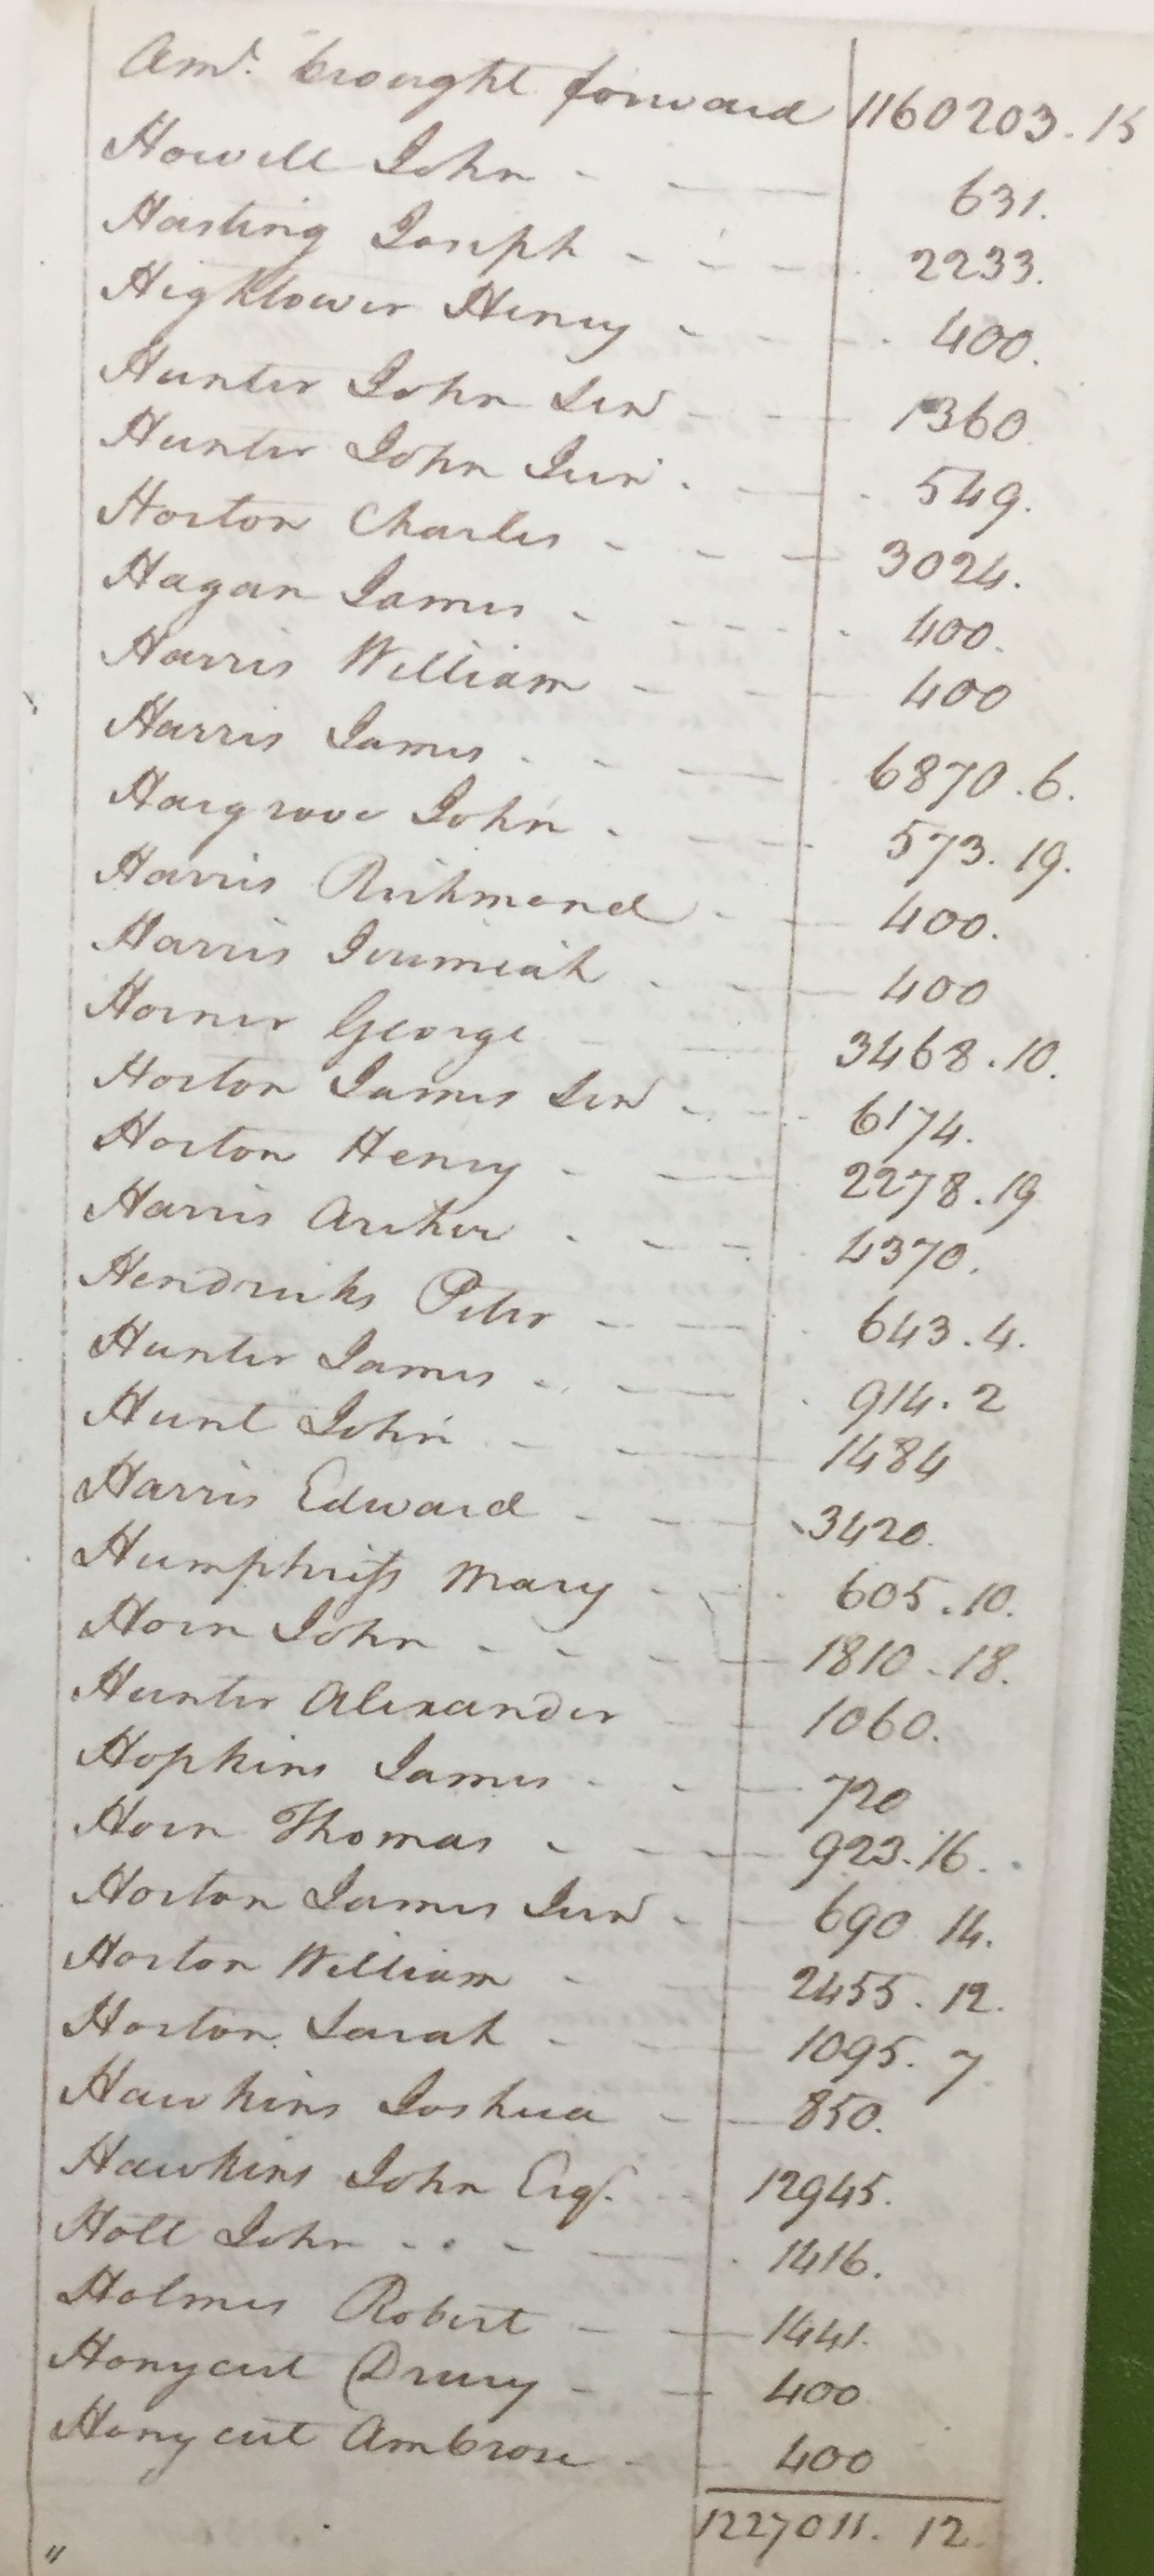 Amt. brought forward 1160203.15
Howell John 631.
Hasting Joseph 2233.
Hightower Henry 400.
Hunter John Senr 1360
Hunter John Junr 549.
Horton Charles 3024.
Hagan James 400.
Harris William 400
Harris James 6870.6.
Hargrove John 573.19.
Harris Richmond 400.
Harris Jeremiah 400
Horner George 3468.10.
Horton James Senr 6174.
Horton Henry 2278.19
Harris Archer 4370.
Hendricks Peter 643.4.
Hunter James 914.2
Hunt John 1484
Harris Edward 3420.
Humphriss Mary 605.10.
Horn John 1810.18.
Hunter Alexander 1060.
Hopkins James 720
Horn Thomas 923.16.
Horton James Junr 690 14.
Horton William 2455.12.
Horton Sarah 1095.7
Hawkins Joshua 850.
Hawkins John Esqr. 12945.
Holt John 1416.
Holmes Robert 1441.
Honycut Drury 400
Honycut Ambrose 400
1227011.12.
"